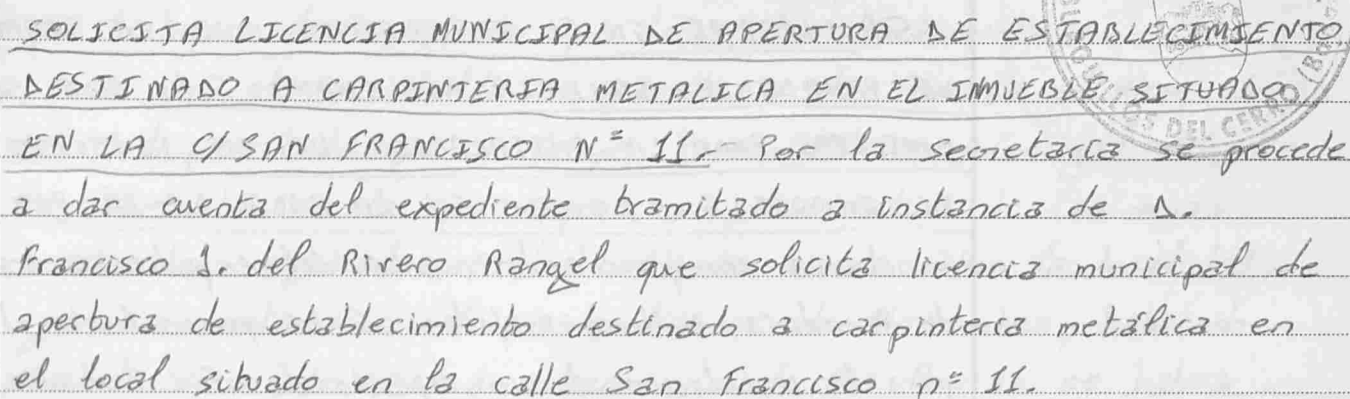 SOLICITA LICENCIA MUNICIPAL DE APERTURA DE ESTABLECIMIENTO
DESTINADO A CARPINTERIA METALICA EN EL INMUEBLE SITUADO
EN LA C/ SAN FRANCISCO Nº 11.- Por la secretaría se procede
a dar cuenta del expediente tramitado a instancia de D.
Francisco J. del Rivero Rangel que solicita licencia municipal de
apertura de establecimiento destinado a carpintería metálica en
el local situado en la calle San Francisco nº 11.
OS DEL CERRO